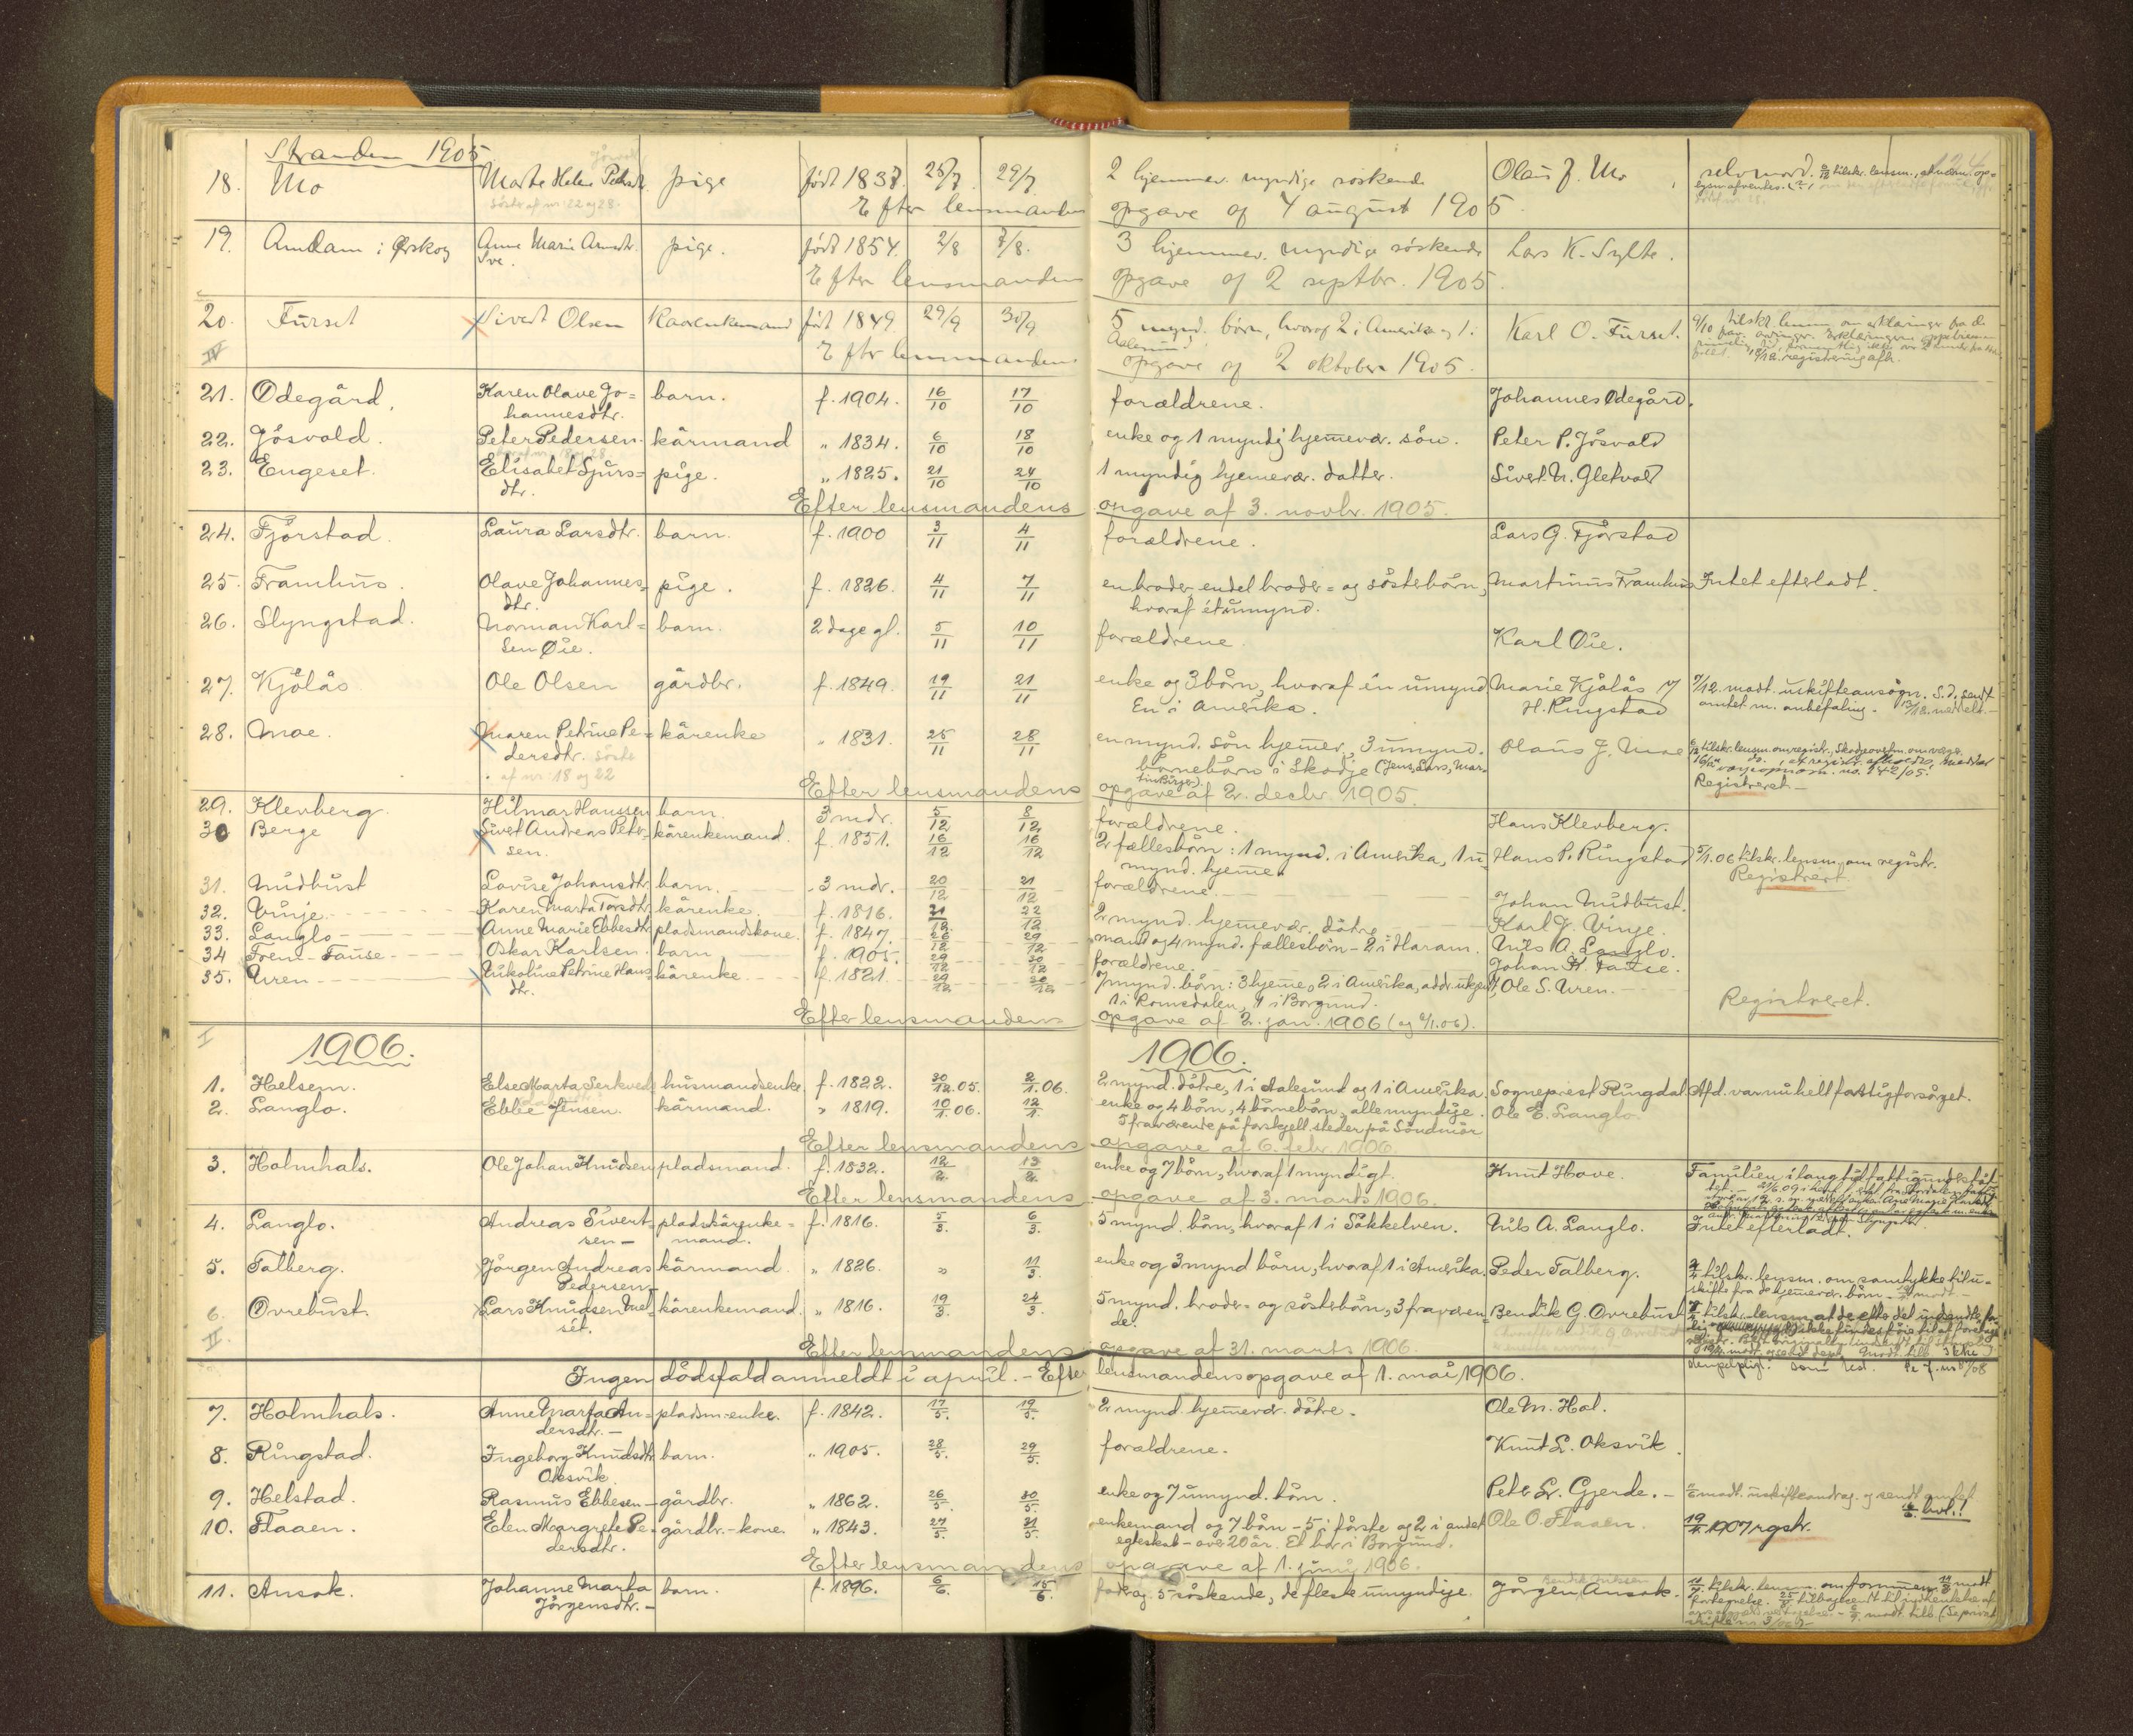 Stranden 1905
18. Mo Marte Helene Pedersdtr. pige født 1837. 25/7 29/7 2 hjemmev. myndige søskende Olaus J. Mo selvmord.
søster af nr. 22 og 28.
Efter lensmandens opgave af 4 august 1905.
19. Amdam i Ørskog Anne Marie Arnesdtr. pige. født 1854. 2/8 7/8. 3 hjemmev. myndige søskende Lars K. Sylte.
Efter lensmandens opgave af 2 septbr. 1905.
20. Furset Sivert Olsen Kaarenkemand født 1849. 29/9 30/9 5 mynd. børn, hvoraf 2 i Amerika, 1 i Karl O. Furset. 9/10 tilskr. lensm. om erklæringer fra de
Aalesund.
IV Efter lensmandens opgave af 2 oktober 1905.
21. Ødegård. Karen Olave Jo= barn. f. 1904. 16/10 17/10 forældrene. Johannes Ødegård.
hannesdtr.
22. Jøsvold. Peter Pedersen. kårmand " 1834. 6/10 18/10 enke og 1 myndig hjemevær. søn. Peter P. Jøsvold
23. Engeset. Elisabet Sjurs= pige. " 1825. 21/10 24/10 1 myndig hjemevær. datter. Sivert N. Gletvold
dtr.
Efter lensmandens opgave af 3. novbr. 1905.
24. Fjørstad. Laura Larsdtr. barn. f. 1900 3/11 4/11 forældrene. Lars G. Fjørstad
25. Framhus. Olave Johannes= pige. f. 1826. 4/11 7/11 en broder, endel broder= og søsterbørn, Martinus Framhus Intet efterladt.
dtr. hvoraf ét umynd.
26. Slyngstad. Norman Karl= barn. 2 dage gl. 5/11 10/11 forældrene. Karl Øie.
sen Øie.
27. Kjølås Ole Olsen gårdbr. f. 1849. 19/11 21/11 enke og 3 børn, hvoraf én umynd. Marie Kjølås v/ 7/12. modt. uskifteansøgn. S.d. sendt
En i Amerika. H. Ringstad amtet m. anbefaling.
28. Moe. Maren Petrine Pe= kårenke " 1831. 25/11 28/11 en mynd. søn hjemev., 3 umynd. Olaus J. Moe
dersdtr. søster børnebørn i Skodje (Jens, Lars, Mar=
af nr. 18 og 22
Efter lensmandens opgave af 2. decbr. 1905. Registreret.
29. Klevberg. Hilmar Hanssen barn. 3 mdr. 5/12 8/12 forældrene. Hans Klevberg.
30 Berge Sivert Andreas Peter= kårenkemand. f. 1851. 16/12 16/12 2 fællesbørn: 1 mynd. i Amerika, 1 u= Hans P. Ringstad 5/1.06 tilskr. lensm. om registr.
sen. mynd. hjeme. Registrert.
31. Midbust Lovise Johansdtr. barn. 3 mdr. 20/12 21/12 forældrene. Johan Midbust.
32. Vinje Karen Marta Torsdtr. kårenke. f. 1816. 21/12 22/12 2 mynd. hjemevær. døtre Karl J. Vinje.
33. Langlo Anne Marie Ebbesdtr. pladsmandskone. f. 1847. 26/12 29/12 mand og 4 mynd. fællesbørn - 2 i Haram. Nils A. Langlo.
34 Frem-Fause Oskar Karlsen. barn f. 1905. 29/12 30/12 forældrene. Johan K. Fause.
35. Uren Nikoline Petrine Hans= kårenke f. 1821. 29/12 30/12 7 mynd. børn: 3 hjeme, 2 i Amerika, addr. ukjent, Ole S. Uren.
dtr. 1 i Romsdalen, 1 i Borgund. Registreret.
Efter lensmandens opgave af 2. jan. 1906 (og 6/1.06).
I 1906. 1906.
1. Helsem. Else Marta Serkved husmandsenke. f. 1822. 30/12.05. 2/1.06. 2 mynd. døtre, 1 i Aalesund og 1 i Amerika. Sogneprest Ringdal. Afd. var nu helt fattigforsørget.
2. Langlo. Ebbe Jensen. kårmand. " 1819. 10/1.06. 12/1. enke og 4 børn, 4 børnebørn, alle myndige. Ole E. Langlo.
5 fraværende på forskjell. steder på Søndmør
Efter lensmandens opgave af 6. febr. 1906.
3. Holmhals. Ole Johan Knudsen pladsmand. f. 1832. 12/2. 13/2. enke og 7 børn, hvoraf 1 myndigt. Knut Hove.
Efter lensmandens opgave af 3. marts 1906.
4. Langlo. Andreas Sivert= pladskårenke= f. 1816. 5/3. 6/3. 5 mynd. børn, hvoraf 1 i Søkkelven. Nils A. Langlo. Intet efterladt.
sen - mand.
5. Talberg. Jørgen Andreas kårmand. " 1826. " 11/3 enke og 3 mynd børn, hvoraf 1 i Amerika. Peder Talberg. tilskr. lensm. om samtykke til u=
Pedersen. skifte fra de hjemevær. børn.
6. Ovrebust. Lars Knudsen Mel= kårenkemand. " 1816. 19/3. 24/3. 5 mynd. broder= og søsterbørn, 3 fraværen= Bendik G. Ovrebust
set. de.
II. Efter lensmandens opgave af 31. marts 1906.
Ingen dødsfald anmeldt i april. - Efter lensmandens opgave af 1. mai 1906.
7. Holmhals. Anne Marta An= pladsm.enke. f. 1842. 17/5. 19/5. 2 mynd. hjemevær. døtre. Ole M. Hol.
dersdtr. -
8. Ringstad. Ingeborg Knudsdtr. barn. " 1905. 28/5. 29/5. forældrene. Knut L. Oksvik.
Oksvik.
9. Helstad. Rasmus Ebbesen gårdbr. " 1862. 26/5. 30/5. enke og 7 umynd. børn. Peter Sr. Gjerde. - modt. uskifteandrag. og sendt amtet
10. Flaaen. Elen Margrete Pe= gårdbr.-kone. " 1843. 27/5. 31/5. enkemand og 7 børn - 5 i første og 2 i andet Ole O. Flaaen. 19/1. 1907 rgstr.
dersdtr. egteskab - over 20 år. Et bor i Borgund.
Efter lensmandens opgave af 1. juni 1906.
11. Ansok. Johanne Marta barn. f. 1896. 6/6. 15/6. far og 5 søskende, de fleste umyndige. Jørgen Ansok.
Jørgensdtr. -